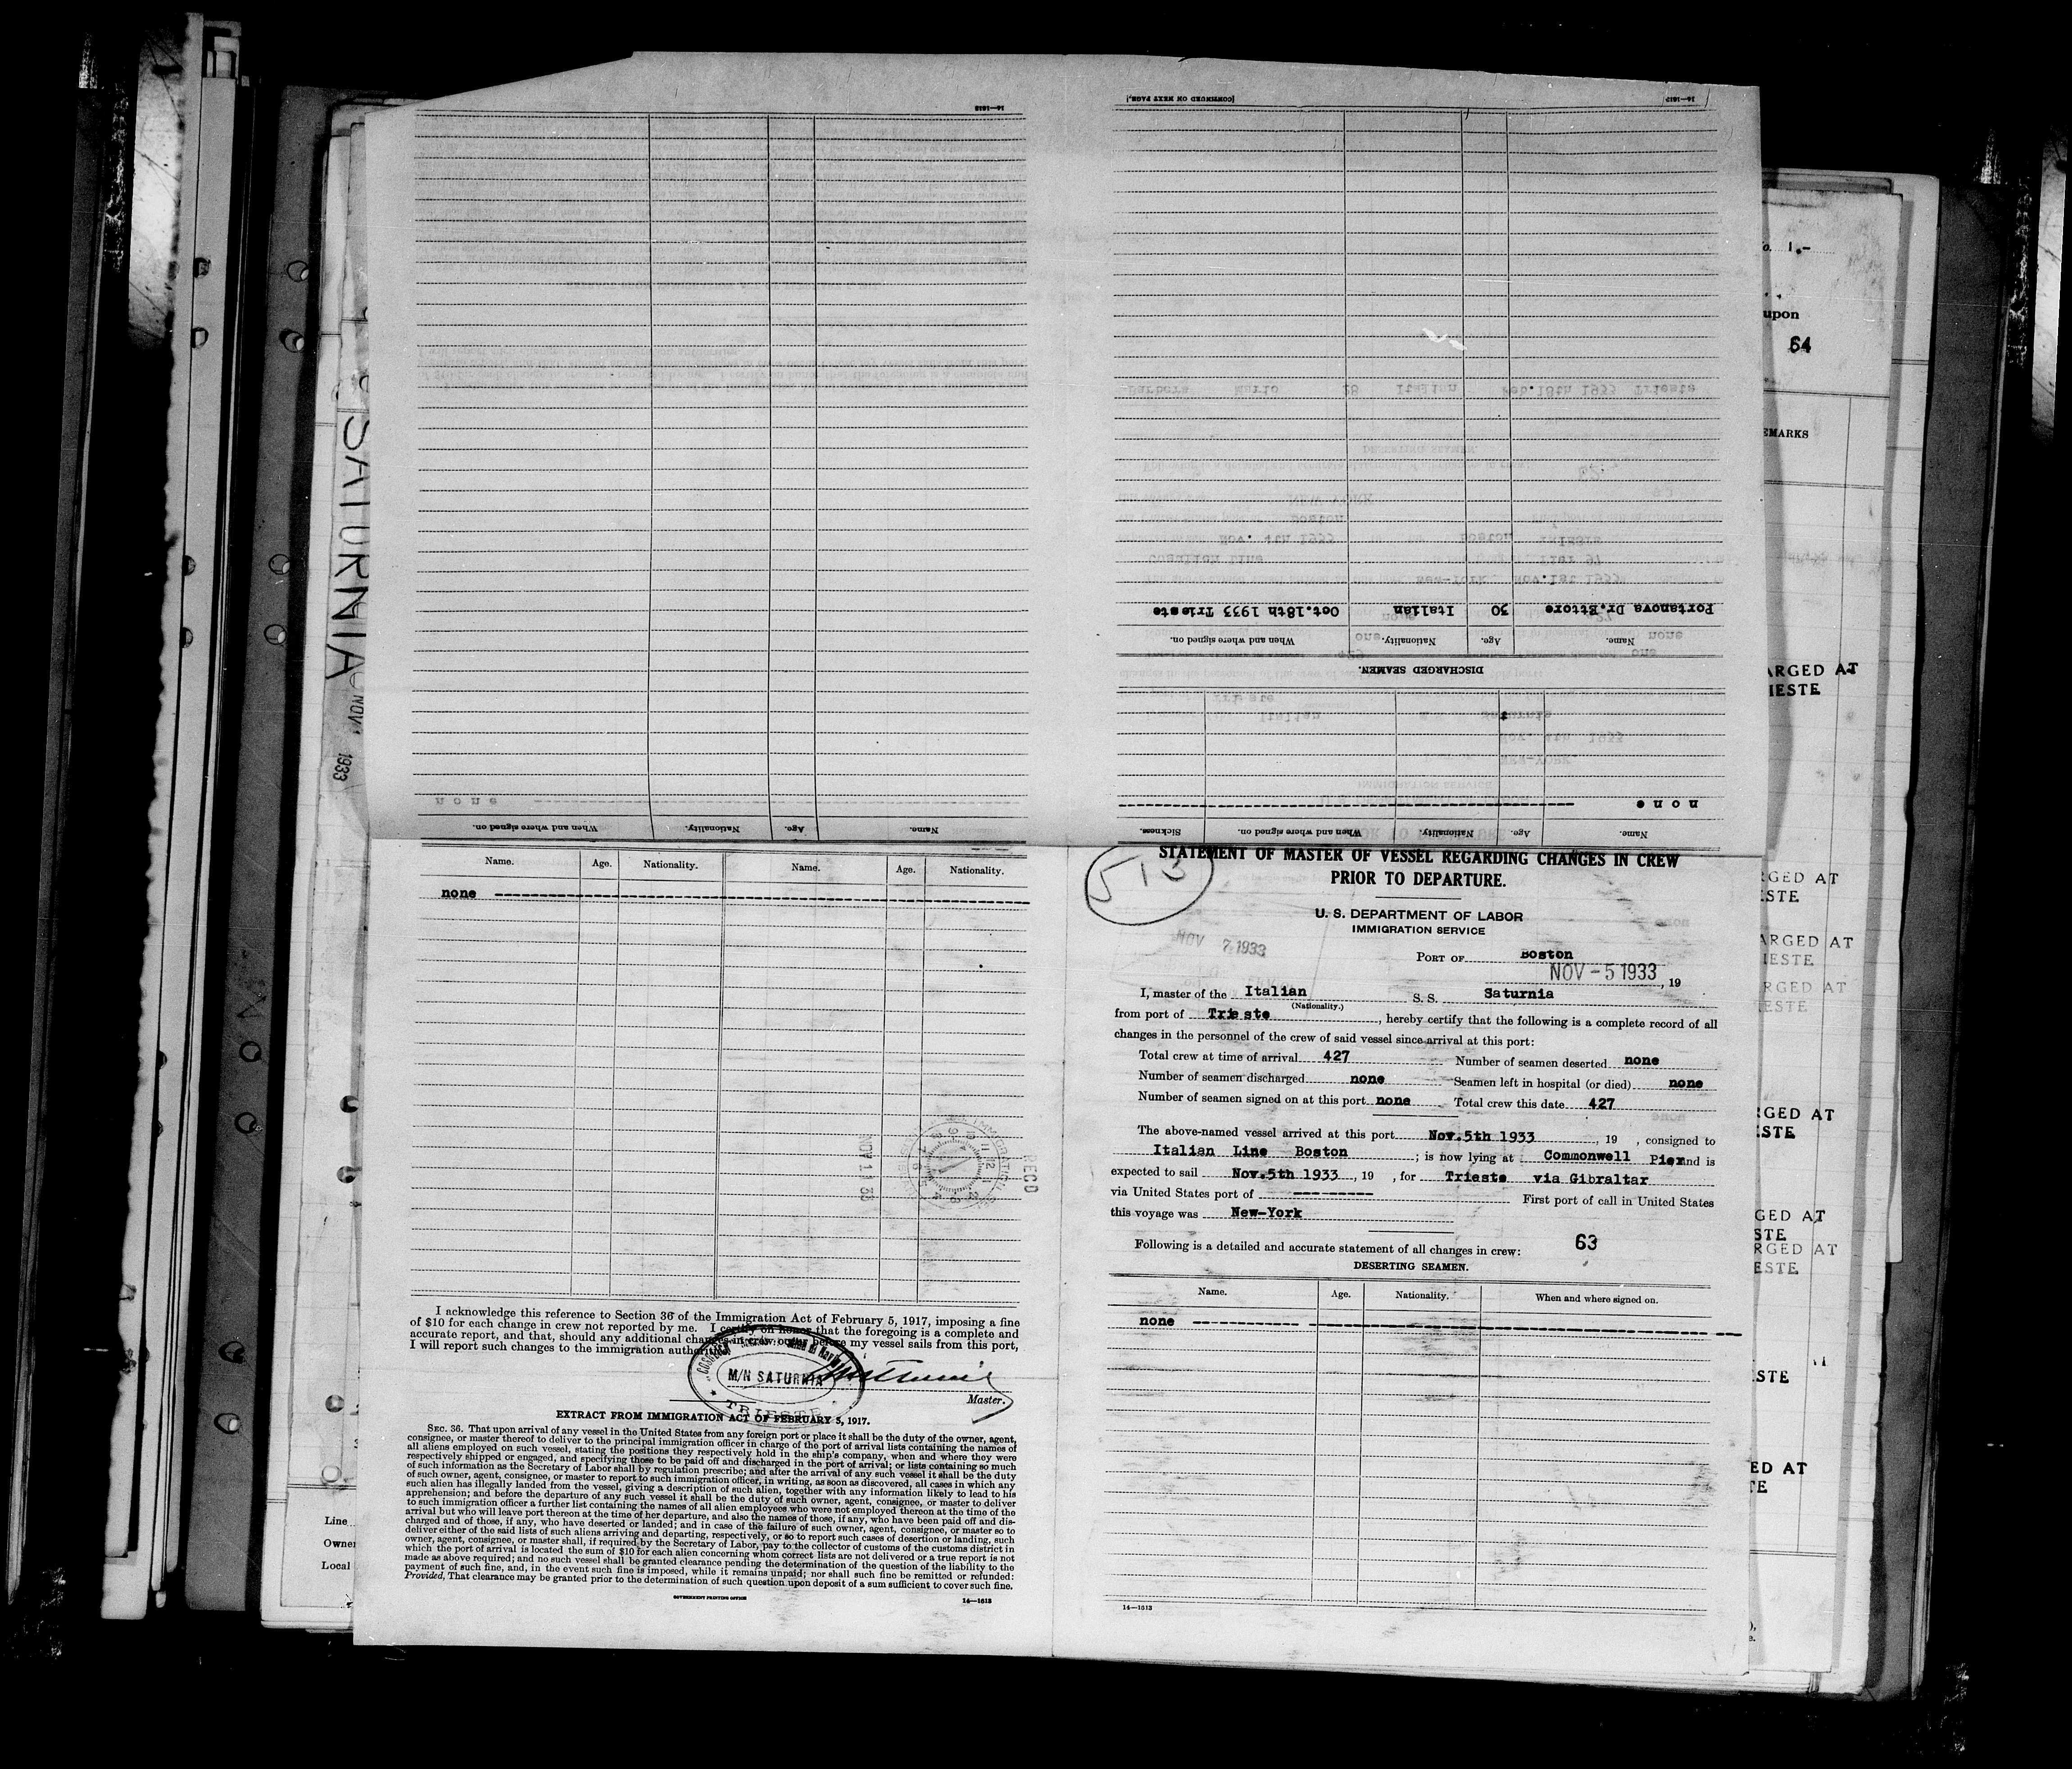 SATURNIA
NOV 1933
14—1613
[CONTINUED ON NEXT PAGE.]
14—1613
Portanova Dr.Ettore 30 Italian Oct.18th 1933 Trieste
Name. Age. Nationality. When and where signed on.
DISCHARGED SEAMEN.
none
Name. Age. Nationality. When and where signed on. Sickness.
none
Name. Age. Nationality. When and where signed on.
Name. Age. Nationality. Name. Age. Nationality.
none
NOV 11 33
REC'D
I acknowledge this reference to Section 36 of the Immigration Act of February 5, 1917, imposing a fine
of $10 for each change in crew not reported by me. I certify on honor that the foregoing is a complete and
accurate report, and that, should any additional changes in crew occur before my vessel sails from this port,
I will report such changes to the immigration authorities.
M/N SATURNIA
TRIESTE
Master.
EXTRACT FROM IMMIGRATION ACT OF FEBRUARY 5, 1917.
SEC. 36. That upon arrival of any vessel in the United States from any foreign port or place it shall be the duty of the owner, agent,
consignee, or master thereof to deliver to the principal immigration officer in charge of the port of arrival lists containing the names of
all aliens employed on such vessel, stating the positions they respectively hold in the ship's company, when and where they were
respectively shipped or engaged, and specifying those to be paid off and discharged in the port of arrival; or lists containing so much
of such information as the Secretary of Labor shall by regulation prescribe; and after the arrival of any such vessel it shall be the duty
of such owner, agent, consignee, or master to report to such immigration officer, in writing, as soon as discovered, all cases in which any
such alien has illegally landed from the vessel, giving a description of such alien, together with any information likely to lead to his
apprehension; and before the departure of any such vessel it shall be the duty of such owner, agent, consignee, or master to deliver
to such immigration officer a further list containing the names of all alien employees who were not employed thereon at the time of the
arrival but who will leave port thereon at the time of her departure, and also the names of those, if any, who have been paid off and dis-
charged and of those, if any, who have deserted or landed; and in case of the failure of such owner, agent, consignee, or master so to
deliver either of the said lists of such aliens arriving and departing, respectively, or so to report such cases of desertion or landing, such
owner, agent, consignee, or master shall, if required by the Secretary of Labor, pay to the collector of customs of the customs district in
which the port of arrival is located the sum of $10 for each alien concerning whom correct lists are not delivered or a true report is not
made as above required; and no such vessel shall be granted clearance pending the determination of the question of the liability to the
payment of such fine, and, in the event such fine is imposed, while it remains unpaid; nor shall such fine be remitted or refunded:
Provided, That clearance may be granted prior to the determination of such question upon deposit of a sum sufficient to cover such fine.
GOVERNMENT PRINTING OFFICE 14—1613
513
STATEMENT OF MASTER OF VESSEL REGARDING CHANGES IN CREW
PRIOR TO DEPARTURE.
U. S. DEPARTMENT OF LABOR
IMMIGRATION SERVICE
NOV 7 1933
PORT OF Boston
NOV - 5 1933, 19
I, master of the Italian S. S. Saturnia
(Nationality.)
from port of Trieste, hereby certify that the following is a complete record of all
changes in the personnel of the crew of said vessel since arrival at this port:
Total crew at time of arrival 427 Number of seamen deserted none
Number of seamen discharged none Seamen left in hospital (or died) none
Number of seamen signed on at this port none Total crew this date 427
The above-named vessel arrived at this port Nov.5th 1933, 19 , consigned to
Italian Line Boston; is now lying at Commonwell Pier and is
expected to sail Nov.5th 1933, 19 , for Trieste via Gibraltar
via United States port of --------- First port of call in United States
this voyage was New-York
Following is a detailed and accurate statement of all changes in crew: 63
DESERTING SEAMEN.
Name. Age. Nationality. When and where signed on.
none
14—1613
Line
Owner
Local
1.-
upon
64
EMARKS
ARGED AT
IESTE
RGED AT
STE
ARGED AT
IESTE
RGED AT
ESTE
RGED AT
STE
GED AT
STE
RGED AT
ESTE
STE
ED AT
TE